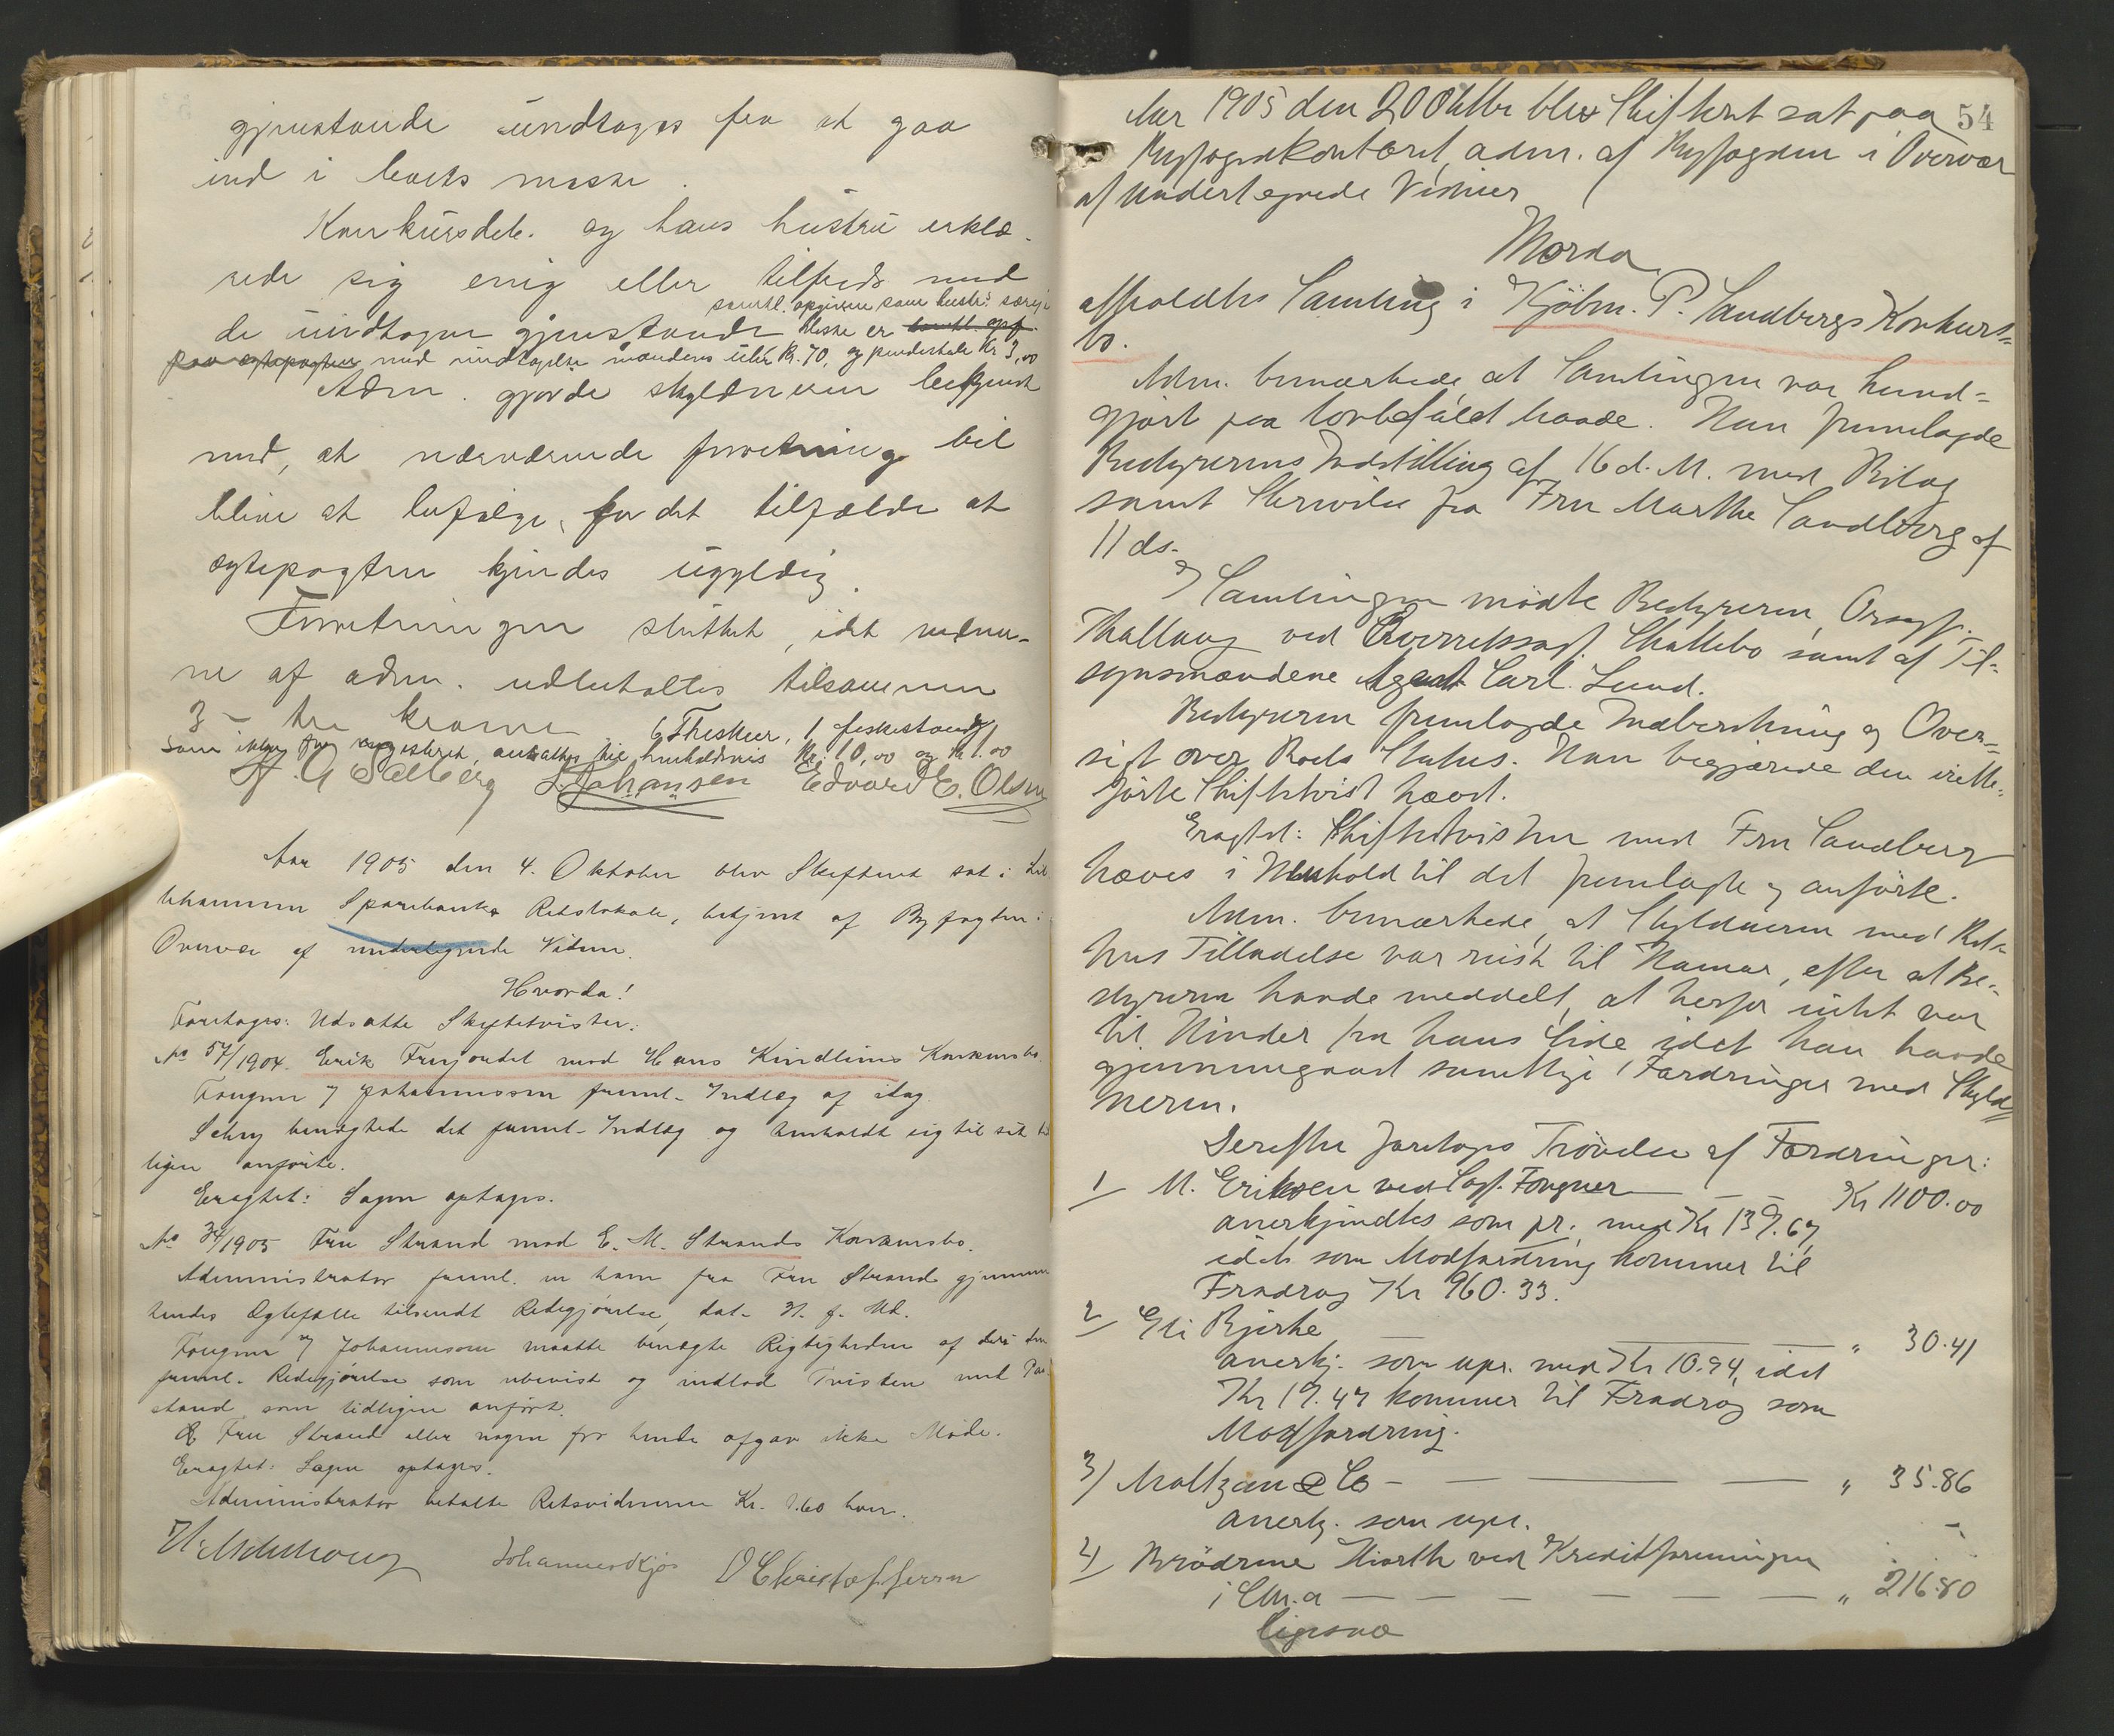 gjenstande undtages fra at gaa
ind i boets masse.
Konkursdeb. og hans hustru erklæ-
rede sig enig eller tilfreds med
samtl. opgivne som hustr. særeje
de undtagne gjenstande
med undtagelse mandens uhr Kr. 70, og Kr 3,00
Adm. gjorde skyldneren bekjendt
med, at nærværende forretning vil
blive at befølge, for det tilfælde at
ægtepagten kjendes ugyldig.
Forretningen sluttet, idet vidner-
ne af adm. udbetaltes tilsammen
3 – tre kroner 6 Theskeer, 1 fiskestang
som ikke før registeret, ansattes til henholdsvis Kr. 10,00 og Kr 1.00
A. G Sælberg Johansen Edvard E. Olsen
Aar 1905 den 4. Oktober blev Skifteret sat i Lil-
lehammer Sparebanks Retslokale, betjent af Byfogden i
Overvær af undertegnede Vidner.
Hvorda!
Foretages: Udsatte Skiftetvister:
No 57/1904. Erik Frujordet mod Hans Kindlims Konkursbo.
Fougner og Johannessen freml. Indlæg af idag.
Selny benægtede det freml. Indlæg og henholdt sig til sit tid-
ligere anførte.
Eragtet: Sagen optages.
No 34/1905 Fru Strand mod E. M. Strands Konkursbo.
Administrator freml. en ham fra Fru Strand gjennem
hendes Ægtefælle tilsendt Redegjørelse, dat. 31. f. Md.
Fougner og Johannessen maatte benægte Rigtigheden af den
freml. Redegjørelse som ubevist og indlod Tvisten med Paa-
stand som tidligere anført.
Fru Strand eller nogen for hende afgav ikke Møde.
Eragtet: Sagen optages.
Administrator betalte Retsvidnerne Kr. 1.60 hver.
Johannes Skjøs O Christoffersen
54
Aar 1905 den 20 Oktbr blev Skifteret sat paa
Byfogedkontoret, adm. af Byfogden i Overvær
af undertegnede Vidner
Hvorda
afholdtes Samling i Kjöbm. P. Sandbergs Konkurs-
bo.
Adm. bemærkede at Samlingen var kund-
gjort paa lovbefalet Maade. Han fremlagde
Bestyrerens Indstilling af 16 d. M. med Bilag
samt Skrivelse fra Fru Marthe Sandberg af
11 ds.
I Samlingen mødte Bestyreren, Orsagf.
Thallaug ved Overretssagf. Skattebo samt af Til-
synsmændene Agent Carl Lund.
Bestyreren fremlagde Indberetning og Over-
sigt over Boets Status. Han begjærede den irette-
førte Skiftetvist hævet.
Eragtet: Skiftetvisten med Fru Sandberg
hæves i Henhold til det fremlagte og anførte.
Adm. bemærkede, at Skyldneren med Ret-
tens Tilladelse var reist til Hamar, efter at Be-
styreren havde meddelt, at herfor intet var
til Hinder fra hans Side idet han havde
gjennemgaaet samtlige Fordringer med Skyld-
neren.
Derefter foretoges Prøvelse af Fordringer:
1/ M. Eriksen ved Sagf. Fougner — — Kr 1100.00
anerkjendtes som pr. med Kr 139.67,
idet som Modfordring kommer til
Fradrag Kr 960.33.
2/ Eli Bjerke — — " 30.41
anerkj. som upr. med Kr 10.94, idet
Kr 19.47 kommer til Fradrag som
Modfordring.
3/ Maltzau & Co — — — " 35.86
anerkj. som upr.
4/ Brødrene Hiorth ved Kreditforeningen
i Chr.a — — — — — — " 216.80
ligesaa